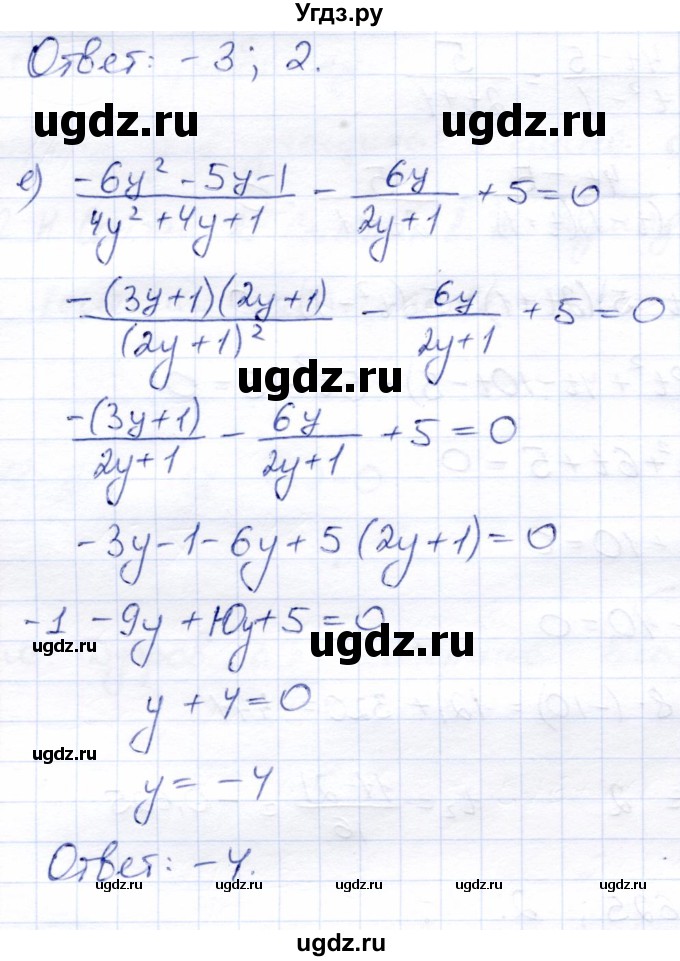 Угдз.ру
Ответ: -3; 2.
ugdz.ru ugdz.ru
е) (-6y² - 5y - 1)/(4y² + 4y + 1) - 6y/(2y+1) + 5 = 0
-(3y+1)(2y+1)/(2y+1)² - 6y/(2y+1) + 5 = 0
ugdz.ru
-(3y+1)/(2y+1) - 6y/(2y+1) + 5 = 0
-3y-1-6y+5(2y+1)=0
-1 -9y +10y+5=0
ugdz.ru ugdz.ru
y + 4 = 0
ugdz.ru
y = -4
Ответ: -4.
ugdz.ru ugdz.ru ugdz.ru ugdz.ru
ugdz.ru